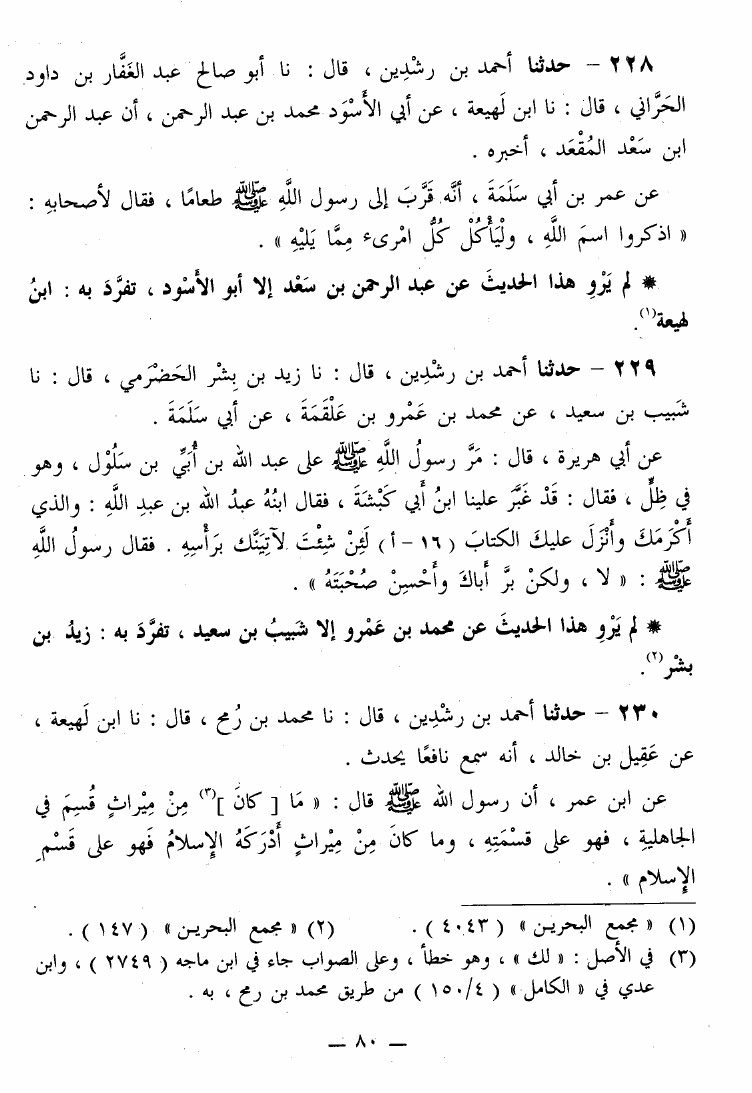 ٢٢٨ – حدثنا أحمد بن رشْدِين ، قال : نا أبو صالح عبد الغَفَّار بن داود
الحَرَّاني ، قال : نا ابن لَهيعة ، عن أبي الأسْوَد محمد بن عبد الرحمن ، أن عبد الرحمن
ابن سَعْد المُقْعَد ، أخبره .
عن عمر بن أبي سَلَمَةَ ، أنَّه قَرَّبَ إلى رسول اللَّهِ ﷺ طعامًا ، فقال لأصحابهِ :
« اذكروا اسمَ اللَّهِ ، ولْيَأْكُلْ كُلُّ امْرىء مِمَّا يَلِيْهِ » .
* لم يَرْوِ هذا الحديثَ عن عبد الرحمن بن سَعْد إلا أبو الأسْوَد ، تفرَّدَ به : ابنُ
لهيعة(١).
٢٢٩ – حدثنا أحمد بن رشْدِين ، قال : نا زيد بن بِشْر الحَضْرَمي ، قال : نا
شَبِيب بن سعيد ، عن محمد بن عَمْرو بن عَلْقَمَةَ ، عن أبي سَلَمَةَ .
عن أبي هريرة ، قال : مَرَّ رسولُ اللَّهِ ﷺ على عبد الله بن أُبَيٍّ بن سَلُوْل ، وهو
في ظِلٍّ ، فقال : قَدْ غَبَّر علينا ابنُ أبي كَبْشَةَ ، فقال ابنُهُ عبدُ الله بن عبدِ اللَّهِ : والذي
أَكْرَمَكَ وأَنْزَلَ عليكَ الكتابَ ( ١٦ – أ ) لَئِنْ شِئْتَ لآتِيَنَّك بَرأْسِهِ . فقال رسولُ اللَّهِ
ﷺ : « لا ، ولكنْ برَّ أَباكَ وأَحْسِنْ صُحْبَتَهُ » .
* لم يَرْوِ هذا الحديثَ عن محمد بن عَمْرو إلا شَبيبُ بن سعيد ، تفرَّدَ به : زيدُ بن
بشْر(٢).
٢٣٠ – حدثنا أحمد بن رشْدِين ، قال : نا محمد بن رُمح ، قال : نا ابن لَهيعة ،
عن عَقِيل بن خالد ، أنه سمع نافعًا يحدث .
عن ابن عمر ، أن رسول الله ﷺ قال : « مَا [ كانَ ](٣) مِنْ مِيْراثٍ قُسِمَ في
الجاهليةِ ، فهو على قسْمَتِهِ ، وما كانَ مِنْ مِيْراثٍ أَدْرَكَهُ الإسلامُ فَهو على قَسْمِ
الإسلام » .
(١) « مجمع البحرين » ( ٤٠٤٣ ) . (٢) « مجمع البحرين » ( ١٤٧ ) .
(٣) في الأصل : « لك » ، وهو خطأ ، وعلى الصواب جاء في ابن ماجه ( ٢٧٤٩ ) ، وابن
عدي في « الكامل » ( ١٥٠/٤ ) من طريق محمد بن رمح ، به .
– ٨٠ –